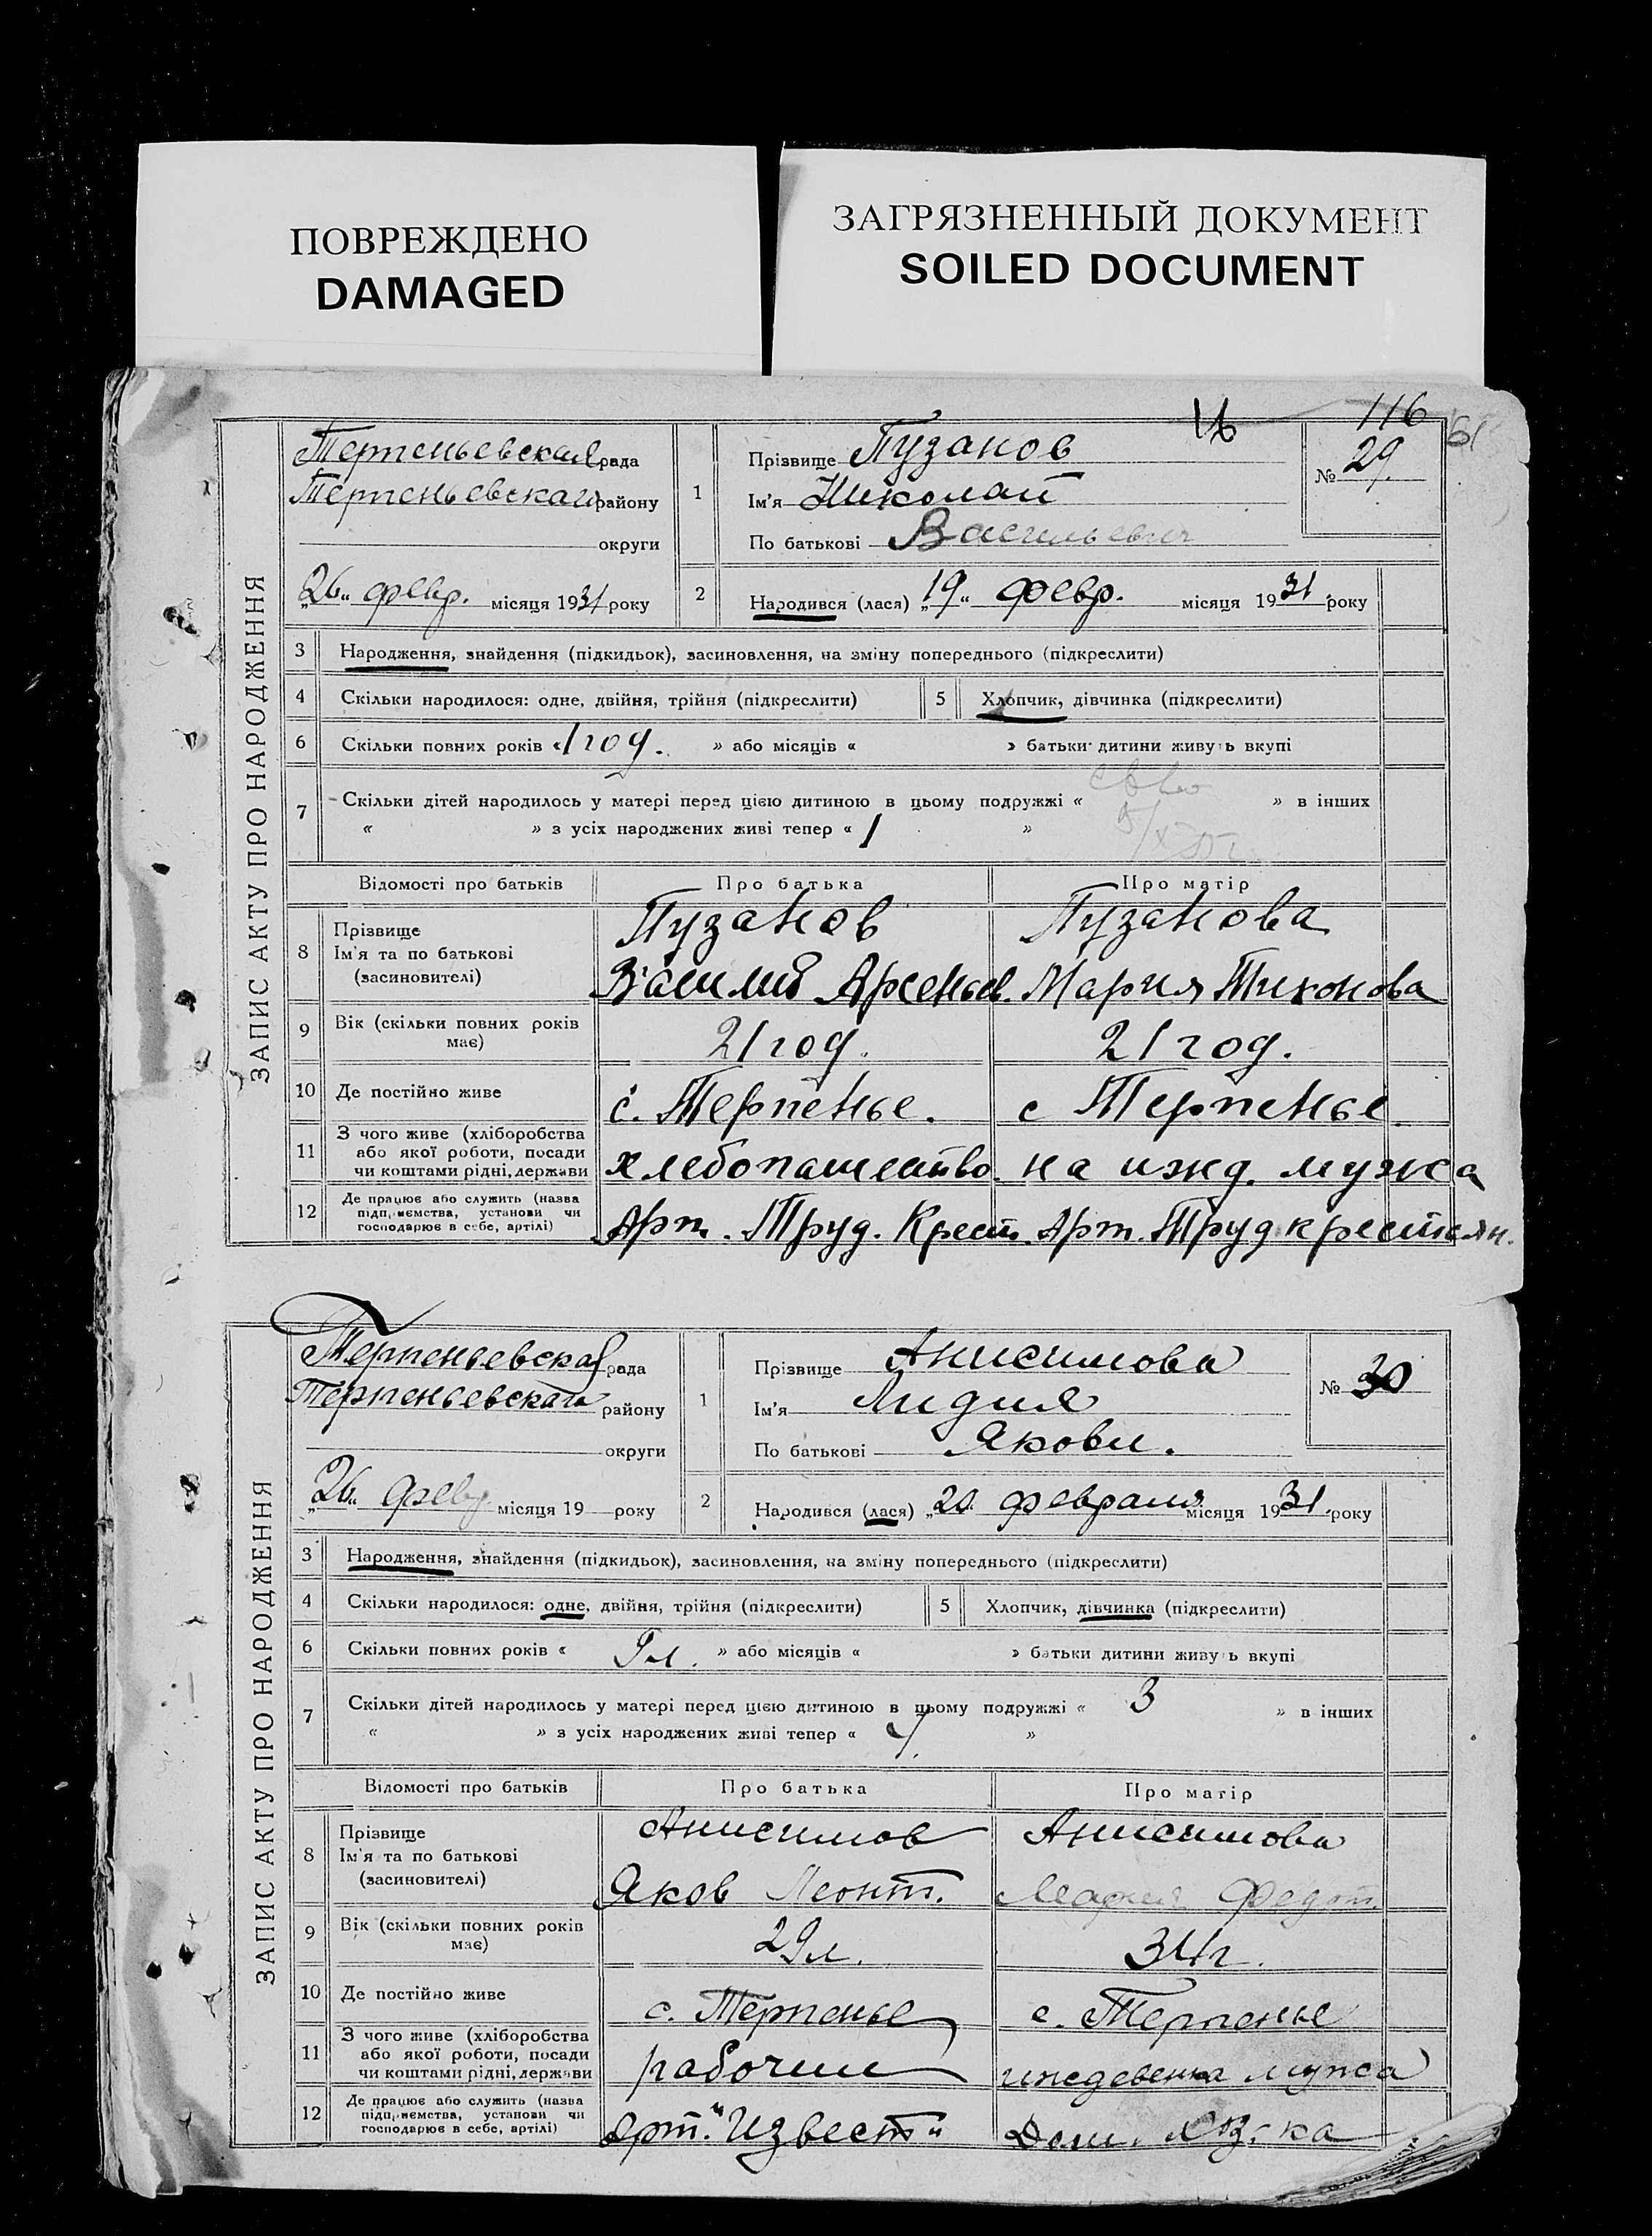 ПОВРЕЖДЕНО
DAMAGED
ЗАГРЯЗНЕННЫЙ ДОКУМЕНТ
SOILED DOCUMENT
116
61
ЗАПИС АКТУ ПРО НАРОДЖЕННЯ
Терпеньевская рада
Терпеньевскаго району
округи
„26“ февр. місяця 1931 року
1
Прізвище Пузанов
Ім'я Николай
По батькові Васильевич
№ 29.
2
Народився (лася) „19“ февр. місяця 1931 року
3 Народження, знайдення (підкидьок), засиновлення, на зміну попереднього (підкреслити)
4 Скільки народилося: одне, двійня, трійня (підкреслити)
5 Хлопчик, дівчинка (підкреслити)
6 Скільки повних років «1 год. » або місяців « » батьки дитини живуть вкупі
7 Скільки дітей народилось у матері перед цією дитиною в цьому подружжі « » в інших
« » з усіх народжених живі тепер « 1 »
Відомості про батьків Про батька Про матір
8 Прізвище
Ім'я та по батькові
(засиновителі)
Пузанов
Василий Арсеньев.
Пузанова
Мария Тихонова
9 Вік (скільки повних років
має)
21 год. 21 год.
10 Де постійно живе с. Терпенье. с Терпенье.
11 З чого живе (хліборобства
або якої роботи, посади
чи коштами рідні, держави
хлебопашество на ижд. мужа
12 Де працює або служить (назва
підприємства, установи чи
господарює в себе, артілі)
Арт. Труд. Крест. Арт. Труд крестьян.
ЗАПИС АКТУ ПРО НАРОДЖЕННЯ
Терпеньевская рада
Терпеньевскаго району
округи
„26“ февр місяця 19 року
1
Прізвище Анисимова
Ім'я Лидия
По батькові Яковл.
№ 30
2
Народився (лася) „20 февраля місяця 1931 року
3 Народження, знайдення (підкидьок), засиновлення, на зміну попереднього (підкреслити)
4 Скільки народилося: одне, двійня, трійня (підкреслити)
5 Хлопчик, дівчинка (підкреслити)
6 Скільки повних років « 9 л. » або місяців « » батьки дитини живуть вкупі
7 Скільки дітей народилось у матері перед цією дитиною в цьому подружжі « 3 » в інших
« » з усіх народжених живі тепер « »
Відомості про батьків Про батька Про матір
8 Прізвище
Ім'я та по батькові
(засиновителі)
Анисимов
Яков Леонт.
Анисимова
Мария Федот.
9 Вік (скільки повних років
має)
29 л. 34 г.
10 Де постійно живе с. Терпенье с. Терпенье
11 З чого живе (хліборобства
або якої роботи, посади
чи коштами рідні, держави
рабочий иждевенка мужа
12 Де працює або служить (назва
підприємства, установи чи
господарює в себе, артілі)
Арт. "Извест" Дом. хоз.ка